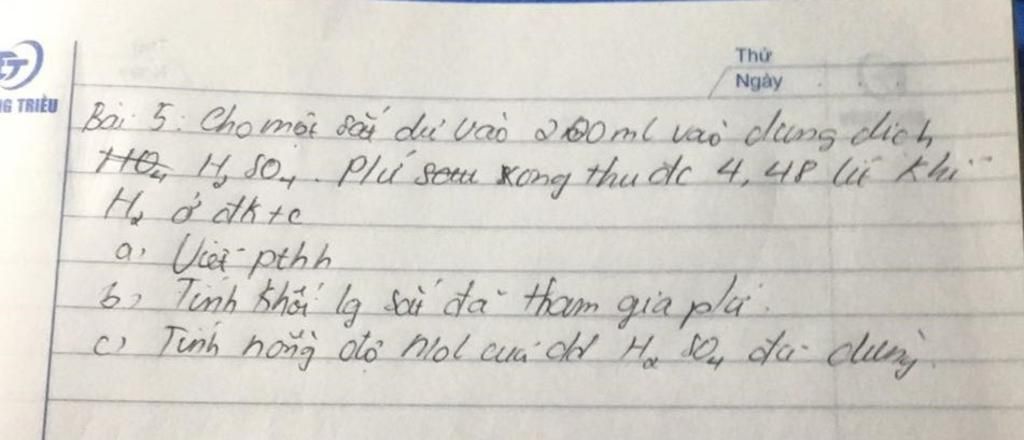 Thứ
Ngày
ET
NG TRIỀU
Bài 5: Cho một sắt dư vào 200ml vào dung dịch
H2SO4. Pứ xong thu đc 4,48 lít khí
H2 ở đktc
a, Viết pthh
b, Tính khối lg sắt đã tham gia pứ.
c, Tính nồng độ mol của dd H2SO4 đã dùng.